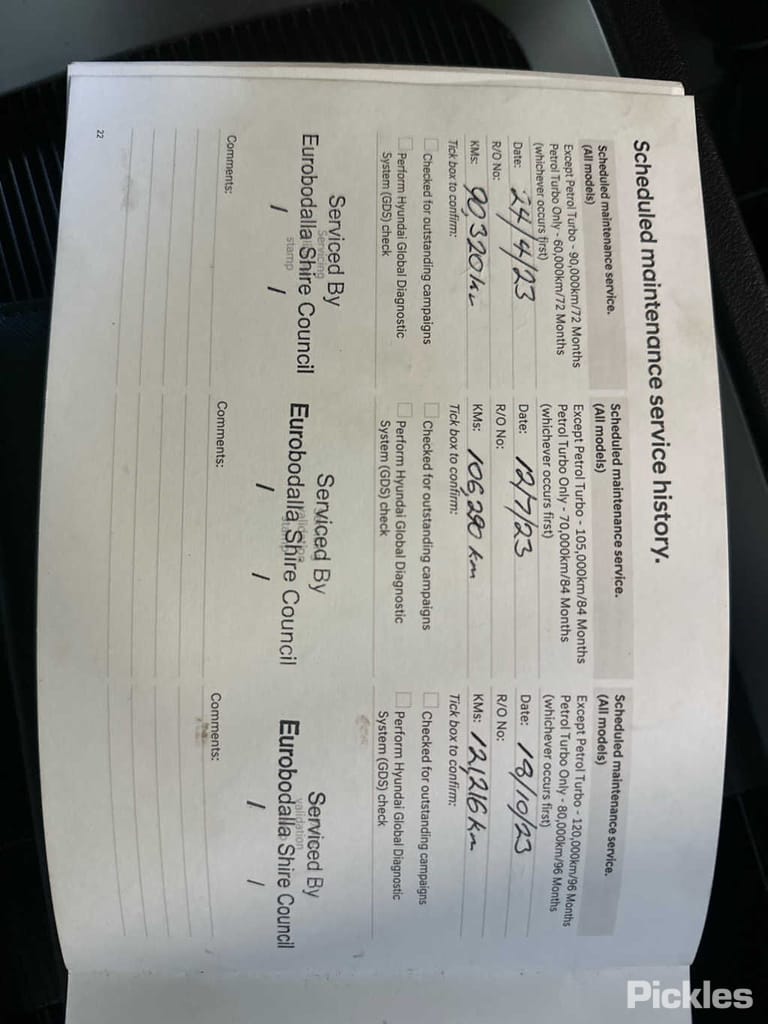 Scheduled maintenance service history.
Scheduled maintenance service.
(All models)
Except Petrol Turbo - 90,000km/72 Months
Petrol Turbo Only - 60,000km/72 Months
(whichever occurs first)
Date: 24/4/23
R/O No:
KMs: 90,320km
Tick box to confirm:
Checked for outstanding campaigns
Perform Hyundai Global Diagnostic
System (GDS) check
Serviced By
Servicing
Eurobodalla Shire Council
stamp
/ /
Comments:
Scheduled maintenance service.
(All models)
Except Petrol Turbo - 105,000km/84 Months
Petrol Turbo Only - 70,000km/84 Months
(whichever occurs first)
Date: 12/7/23
R/O No:
KMs: 106,290 km
Tick box to confirm:
Checked for outstanding campaigns
Perform Hyundai Global Diagnostic
System (GDS) check
Serviced By
Eurobodalla Shire Council
/ /
Comments:
Scheduled maintenance service.
(All models)
Except Petrol Turbo - 120,000km/96 Months
Petrol Turbo Only - 80,000km/96 Months
(whichever occurs first)
Date: 19/10/23
R/O No:
KMs: 121,216 km
Tick box to confirm:
Checked for outstanding campaigns
Perform Hyundai Global Diagnostic
System (GDS) check
Serviced By
validation
Eurobodalla Shire Council
/ /
Comments:
22
Pickles